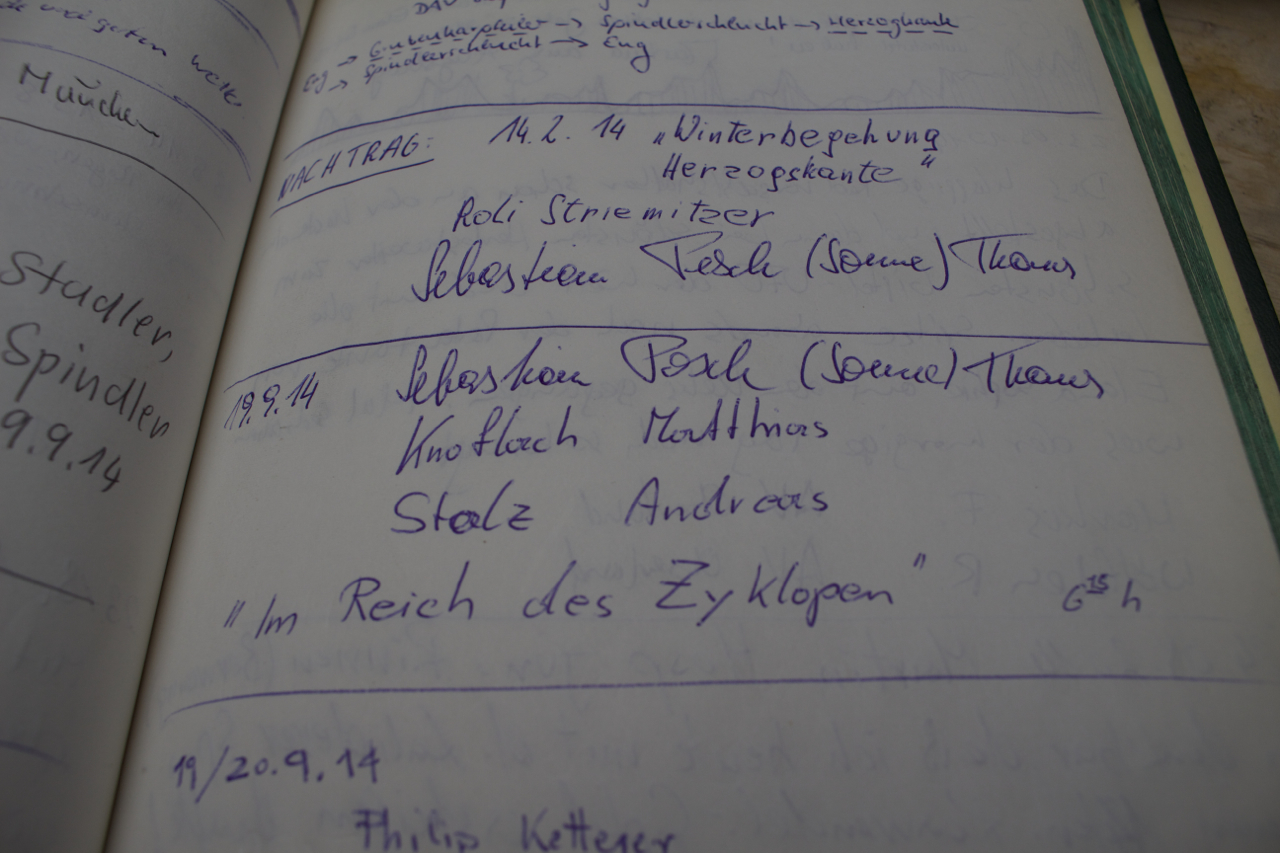 München
Stadler,
Spindler
9.9.14
Spindlerschlucht → Herzogkante
→ Spindlerschlucht → Eng
NACHTRAG: 14.2.14 „Winterbegehung
Herzogskante"
Roli Striemitzer
Sebastian Posch (Sonne) Thaur
19.9.14 Sebastian Posch (Sonne) Thaur
Knoflach Matthias
Stolz Andreas
"Im Reich des Zyklopen" 6¹⁵ h
19/20.9.14
Philip Ketterer